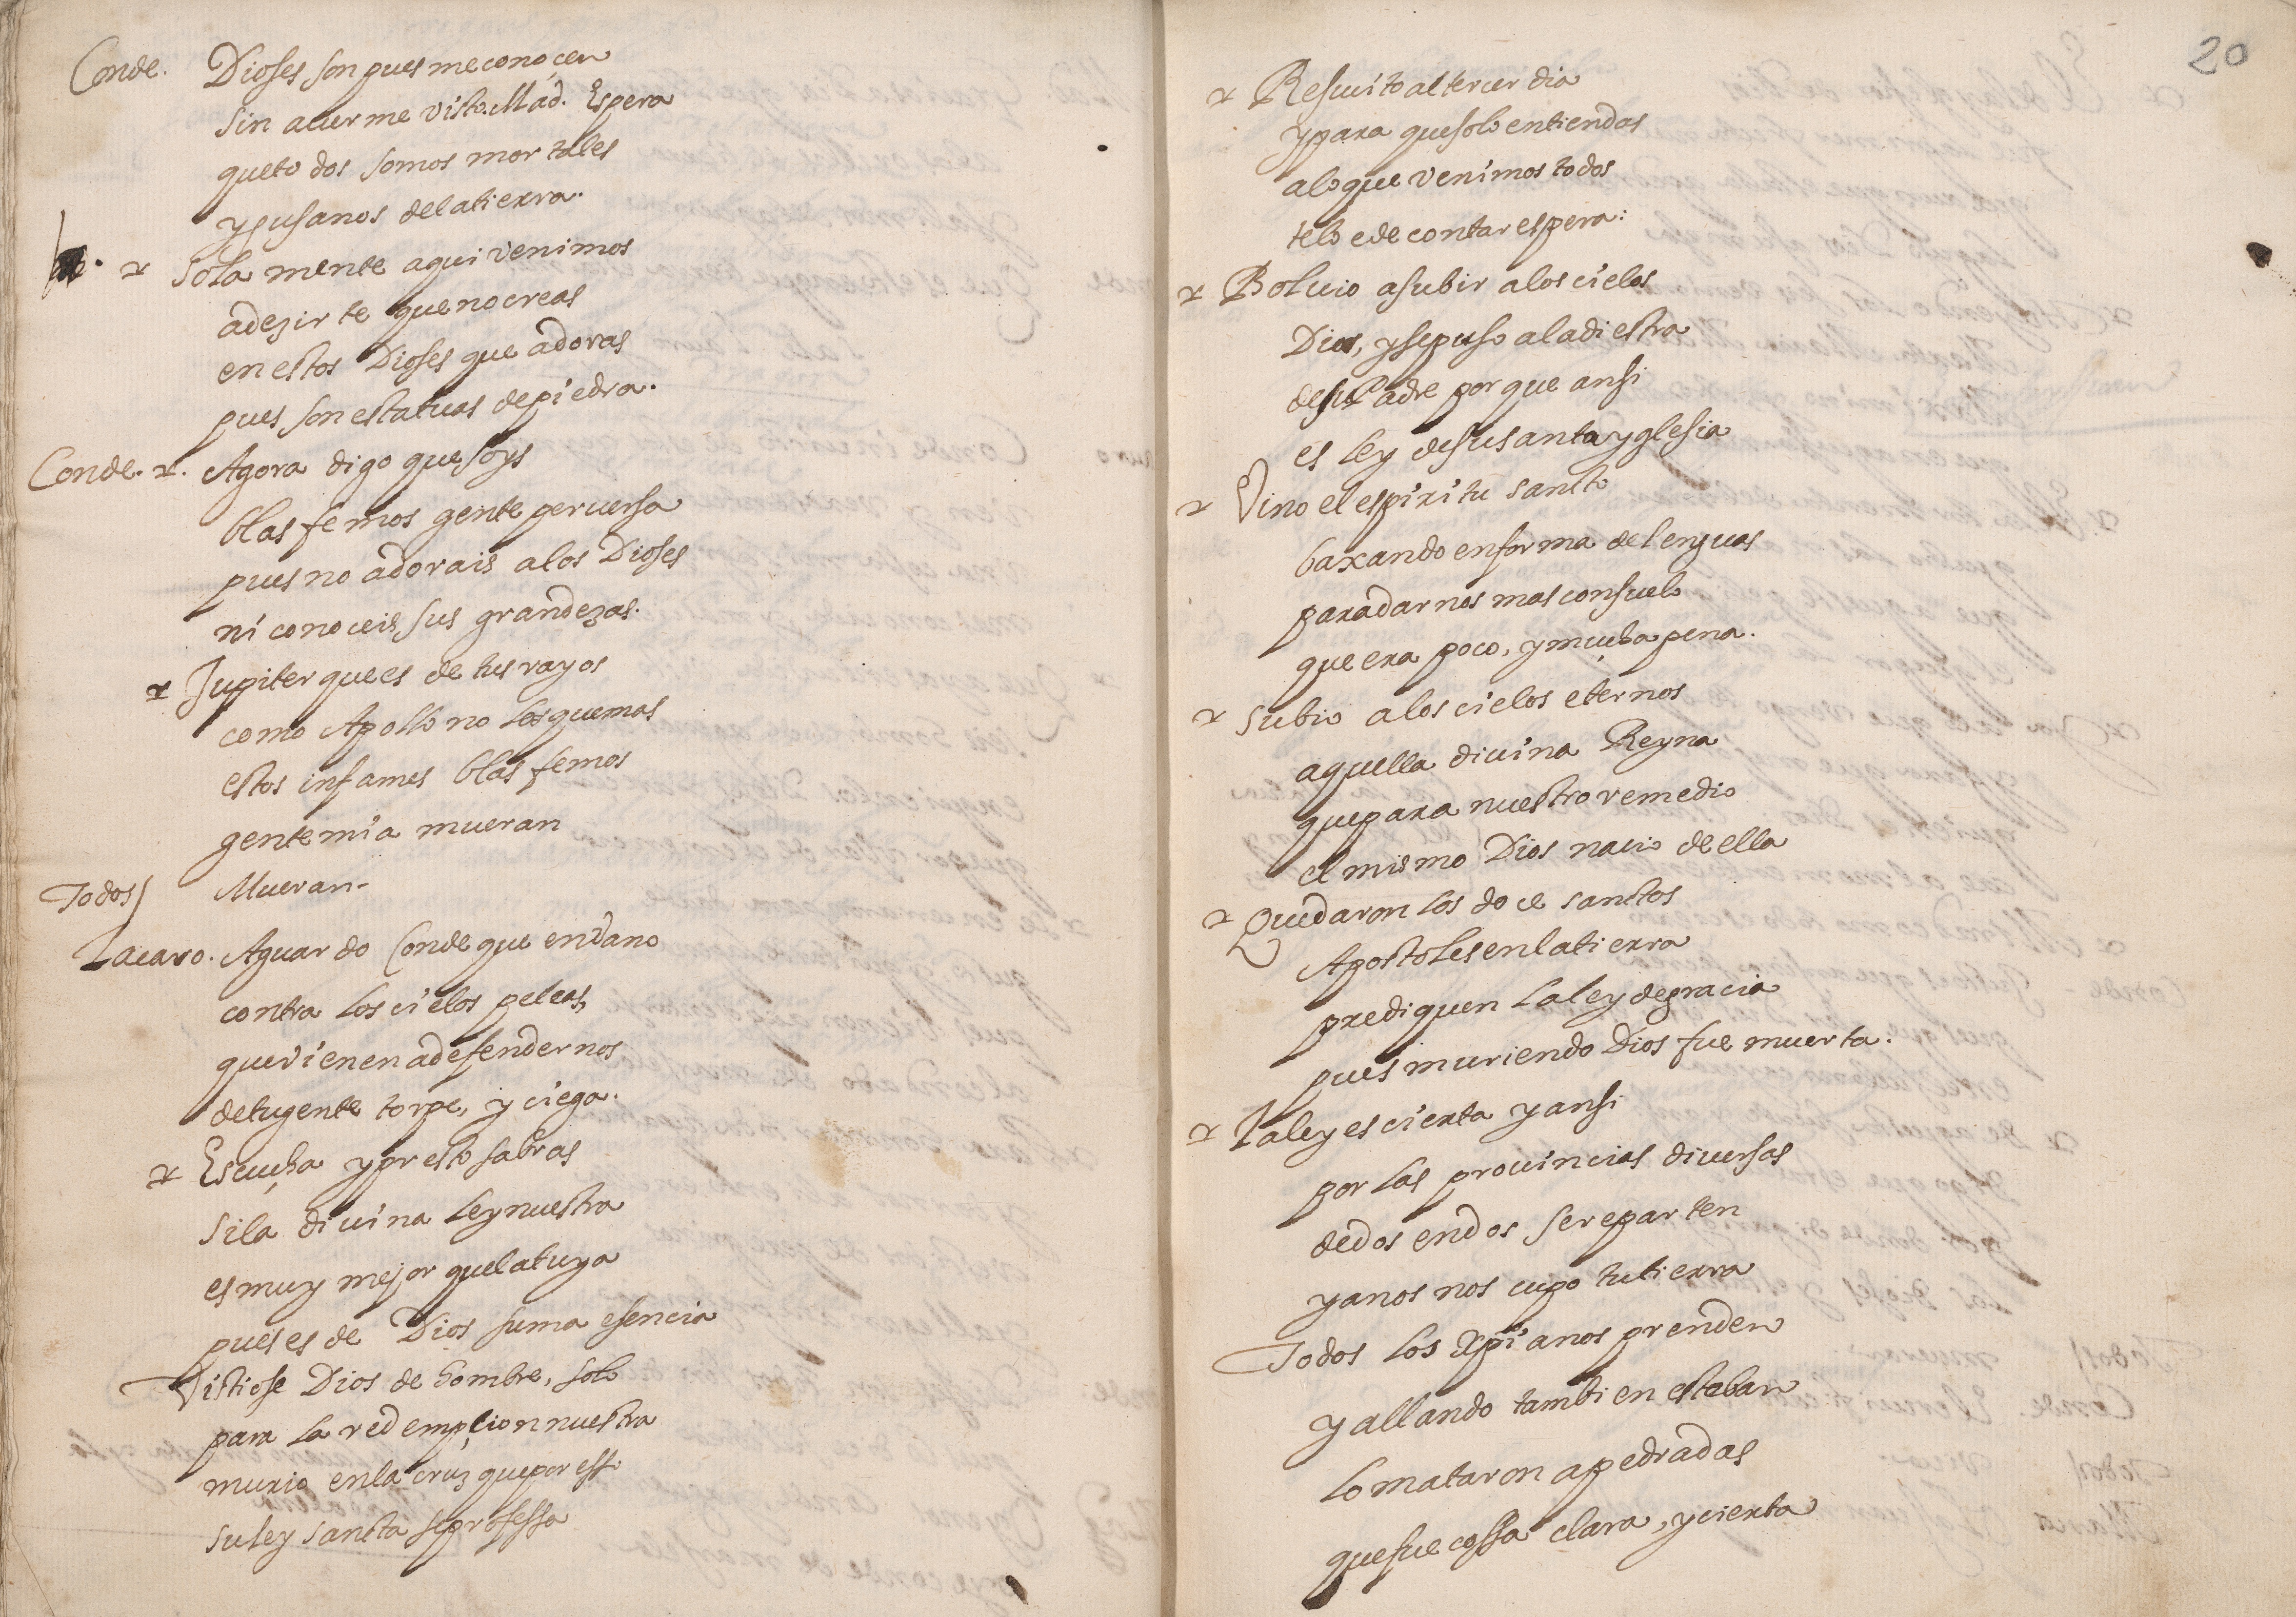 Conde. Dioses son pues me conoçen
sin auerme visto. Mad. Espera
que todos somos mortales
y gusanos de la tierra.
sola mente aqui venimos
a dezirte que no creas
en estos Dioses que adoras
pues son estatuas de piedra.
Conde. Agora digo que soys
blasfemos gente peruersa
pues no adorais a los Dioses
ni conoceis sus grandezas.
Jupiter que es de tus rayos
como Apollo no los quemas
estos infames blasfemos
gente mia mueran
Todos/ Mueran-
Lacaro. Aguardo Conde que en dano
contra los cielos peleas,
que vienen a defendernos
de tu gente torpe, y ciega.
Escucha y presto sabras
si la diuina ley nuestra
es muy mejor que la tuya
pues es de Dios suma esencia
Vistiose Dios de hombre, solo
para la redempcion nuestra
murio en la cruz que por esso
su ley sancta se professa
20
Resucito al tercer dia
y para que solo entiendas
a lo que venimos todos
te lo e de contar espera:
Boluio a subir a los cielos
Dios, y se puso a la diestra
de su Padre por que ansi
es ley de su santa yglesia
Vino el espiritu sancto
baxando en forma de lenguas
para darnos mas consuelo
que era poco, y mucha pena.
subio a los cielos eternos
aquella diuina Reyna
que para nuestro remedio
el mismo Dios nacio de ella
Quedaron los doce sanctos
Apostoles en la tierra
prediquen la ley de gracia
pues muriendo Dios fue muerta.
La ley es cierta y ansi
por las prouincias diuersas
de dos en dos se reparten
y a nos nos cupo tu tierra
Todos los xpianos prenden
y allando tambien esteban
lo mataron a pedradas
que fue cossa clara, y cierta